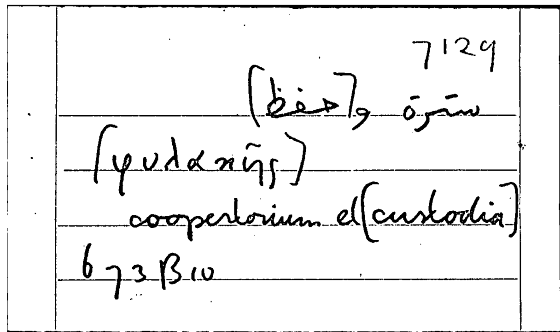 7129
سترة و[حفظ]
[φυλακῆς]
coopertorium et [custodia]
673 B 10